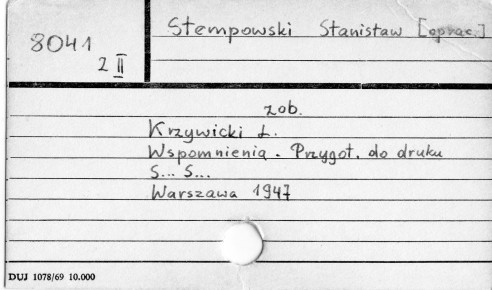 8041
2 II
Stempowski Stanisław [oprac.]
zob.
Krzywicki L.
Wspomnienia. Przygot. do druku
S... S...
Warszawa 1947
DUJ 1078/69 10.000